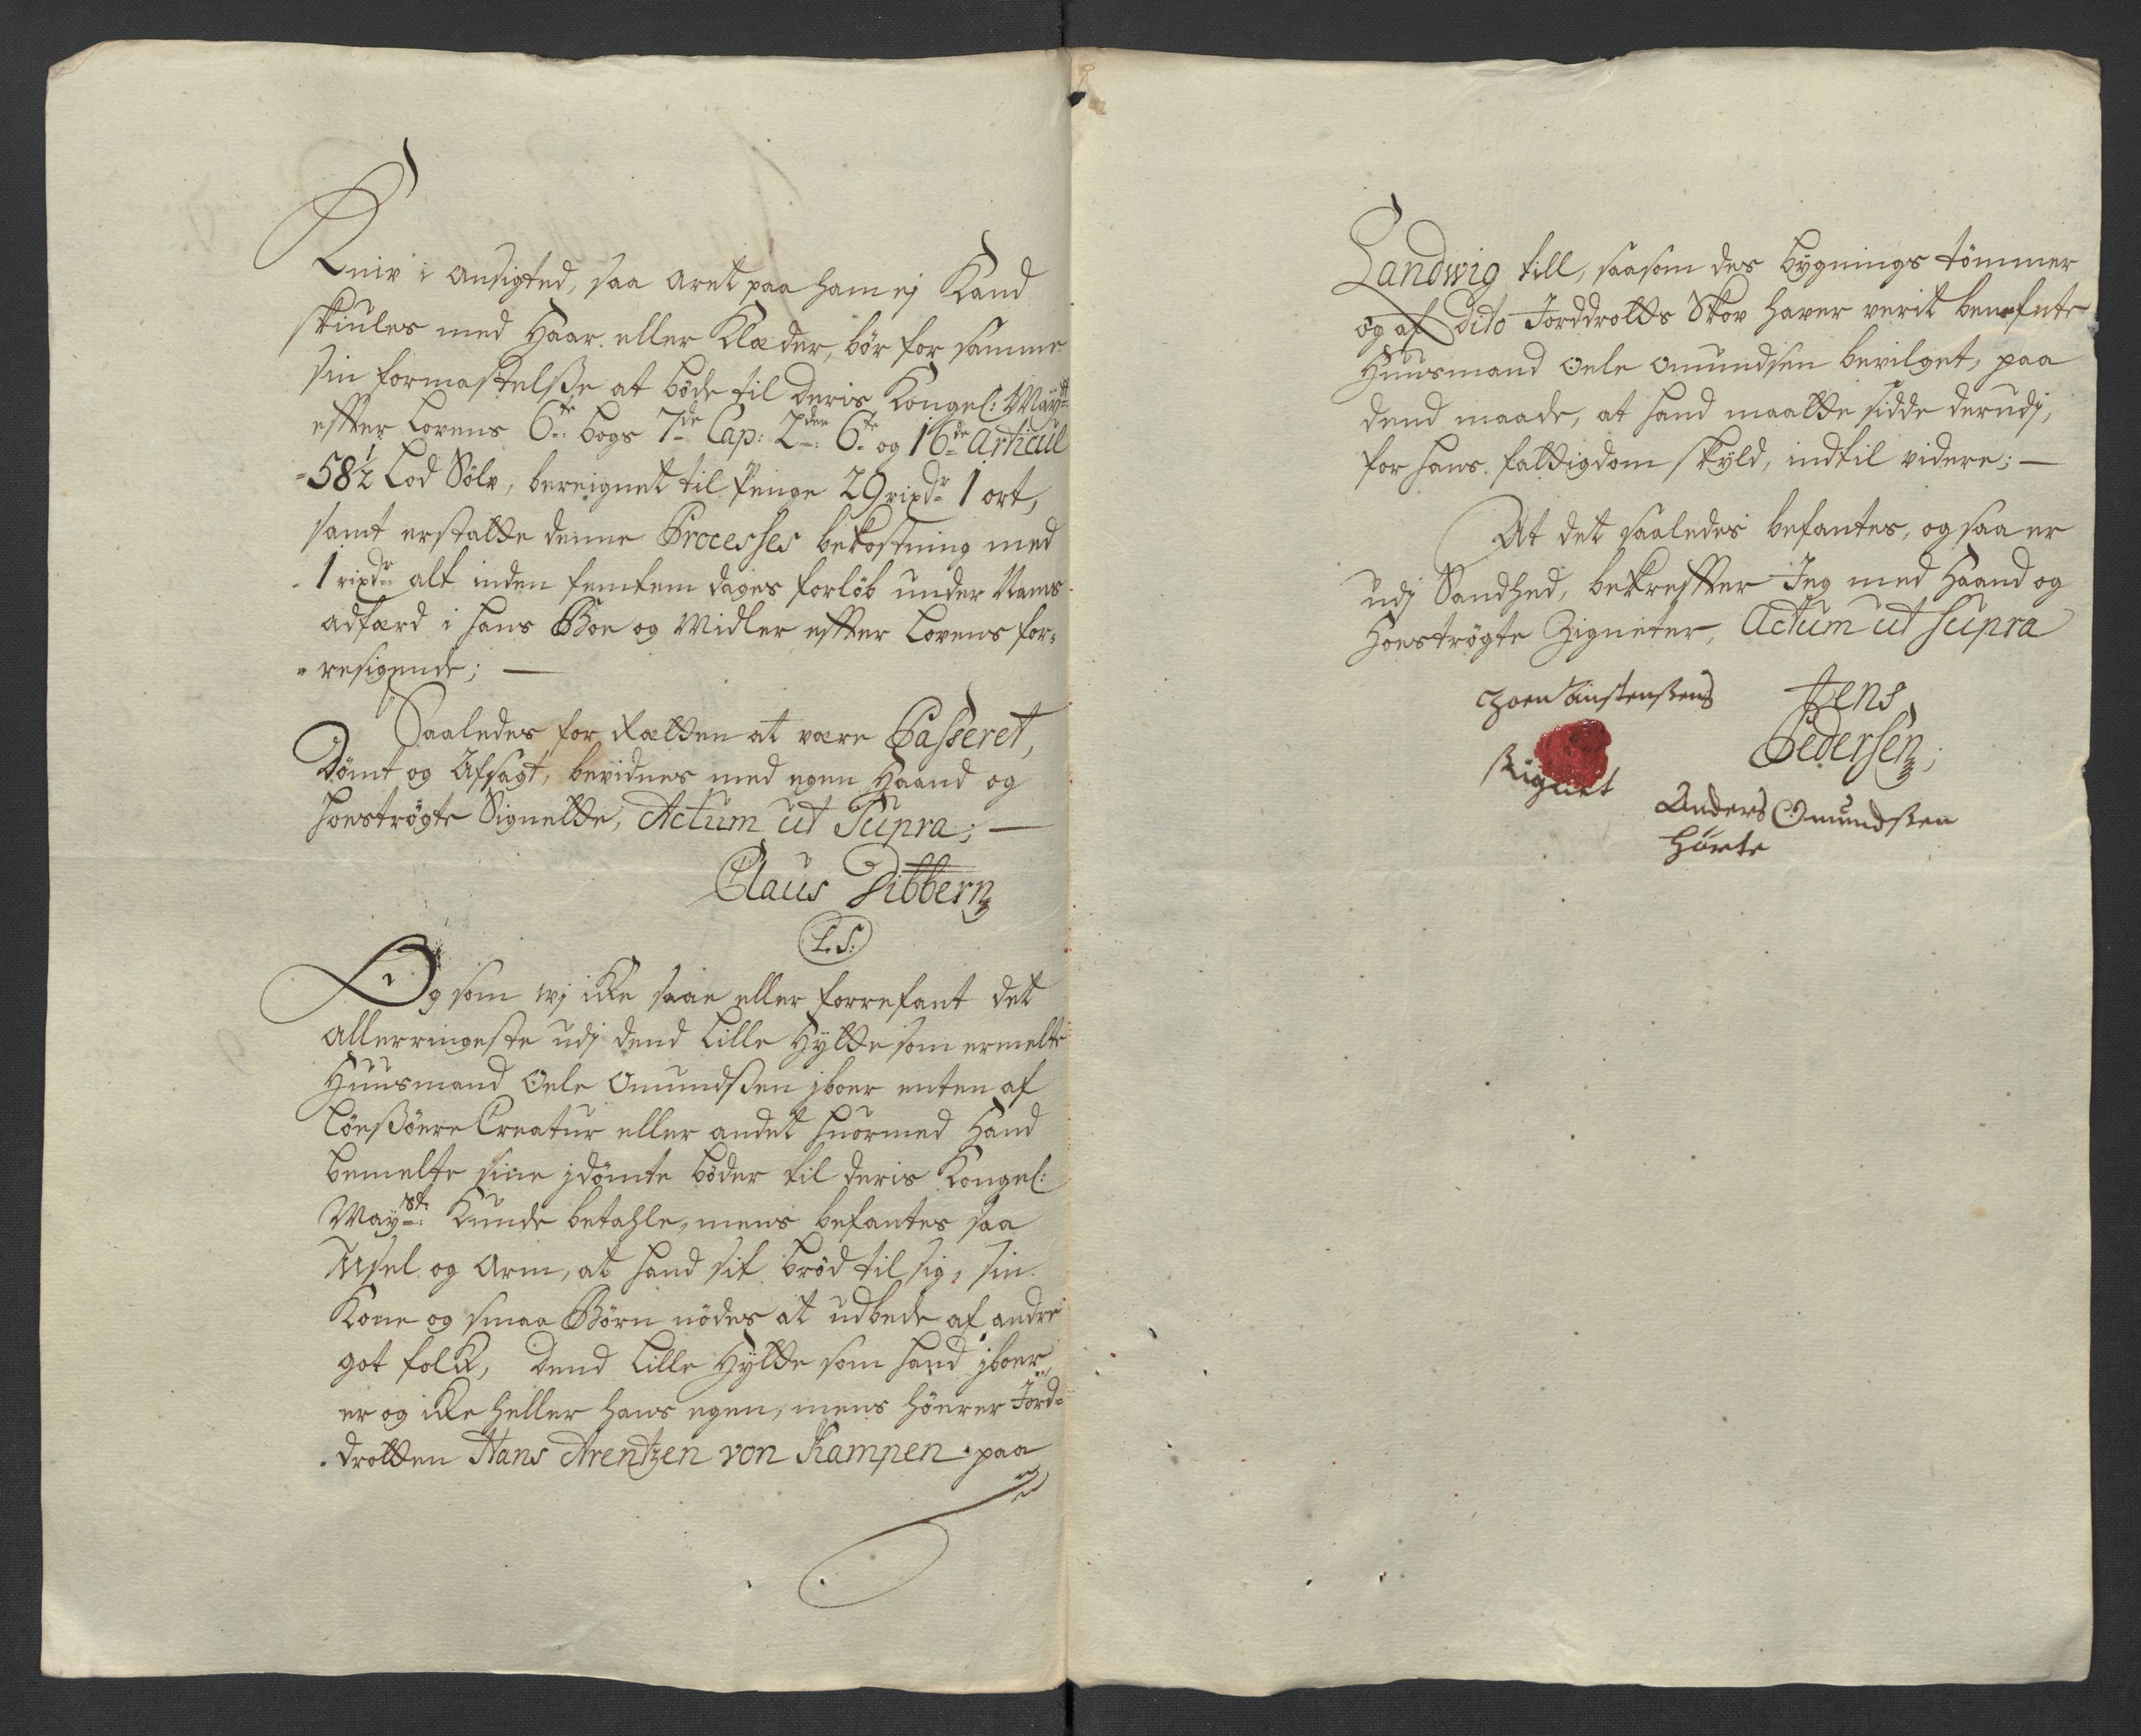 Kniv i Ansigted, saa Aret paa ham ej Kand
skiules med Haar eller Klæder, bör for samme
sin formastelsße at böde til Deris Kongel: Mayst:
effter Lovens 6te bogs 7de Cap: 2den 6te og 16de Articul
58½ Lod Sölv, bereignet til Penge 29 rixdr 1 ort,
samt erstatte denne Processes bekostning med
1 rixdr alt inden femten dages forlöb under Nams
adfærd i hans Boe og Midler effter Lovens for-
resigende; —
Saaledes for Rætten at være Passeret,
Dömt og Afsagt, bevidnes med egen Haand og
hoeströgte Signette, Actum ut Supra; —
Claus Dibbern
L.S.
Og som wj icke saae eller forrefant det
allerringeste udj dend Lille Hytte som ermelte
Huusmand Oele Omundsßen jboer enten af
Löesßöere Creatur eller andet huormed Hand
bemelte sine jdömte böder til deris Kongel:
Mayst: Kunde betahle, mens befantes saa
Usel og Arm, at hand sit bröd til sig, sin
Kone og smaa Börn nödes at udbede af andre
got folck, Dend Lille Hytte som hand jboer,
er og icke heller hans egen, mens höerer Jord-
drotten Hans Arentzen von Kampen paa
Landwig till, saasom des bygnings tömmer
og af Dito Jorddrotts Skov haver verit benefnte
Huusmand Oele Omundsen bevilget, paa
dend maade, at hand maatte sidde derudj,
for hans fattigdom skyld, indtil videre; —
At det saaledes befantes, og saa er
udj Sandhed, bekreffter Jeg med Haand og
hoeströgte Zigneter, Actum ut supra
Jens
Pedersen;
ßignet
Anders Omundßen
Hörte